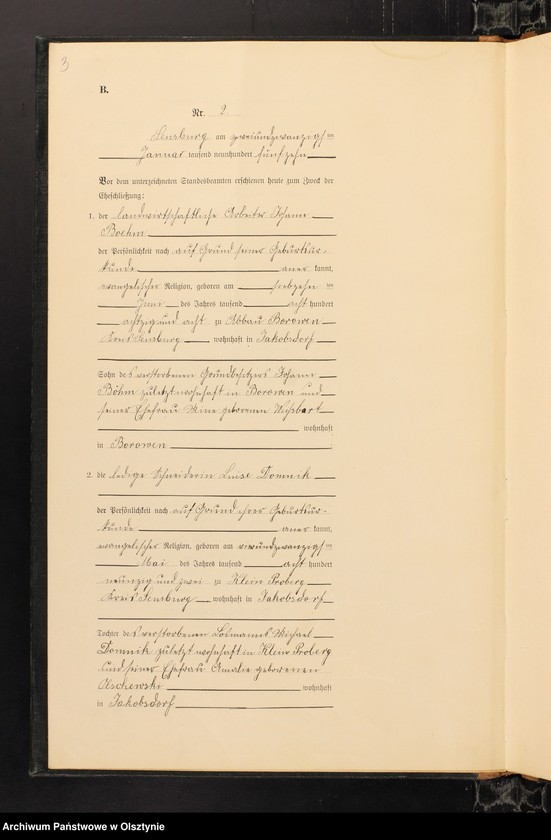 3
B.
Nr. 2.
Sensburg am zweiundzwanzigsten
Januar tausend neunhundert fünfzehn
Vor dem unterzeichneten Standesbeamten erschienen heute zum Zweck der
Eheschließung:
1. der landwirtschaftliche Arbeiter Johann
Boehm
der Persönlichkeit nach auf Grund seiner Geburtsur-
kunde anerkannt,
evangelischer Religion, geboren am siebzehnten
Juni des Jahres tausend acht hundert
achtzig und acht zu Abbau Borowen
Kreis Sensburg wohnhaft in Jakobsdorf
Sohn des verstorbenen Grundbesitzers Johann
Böhm zuletzt wohnhaft in Borowen und
seiner Ehefrau Mine geborenen
wohnhaft
in Borowen
2. die ledige Schneiderin Luise Domnik
der Persönlichkeit nach auf Grund ihrer Geburtsur-
kunde anerkannt,
evangelischer Religion, geboren am vierundzwanzigsten
Mai des Jahres tausend acht hundert
neunzig und zwei zu Klein Proberg
Kreis Sensburg wohnhaft in Jakobsdorf
Tochter des verstorbenen Losmanns Michael
Domnik zuletzt wohnhaft in Klein Proberg
und seiner Ehefrau Amalie geborenen
wohnhaft
in Jakobsdorf
Archiwum Państwowe w Olsztynie